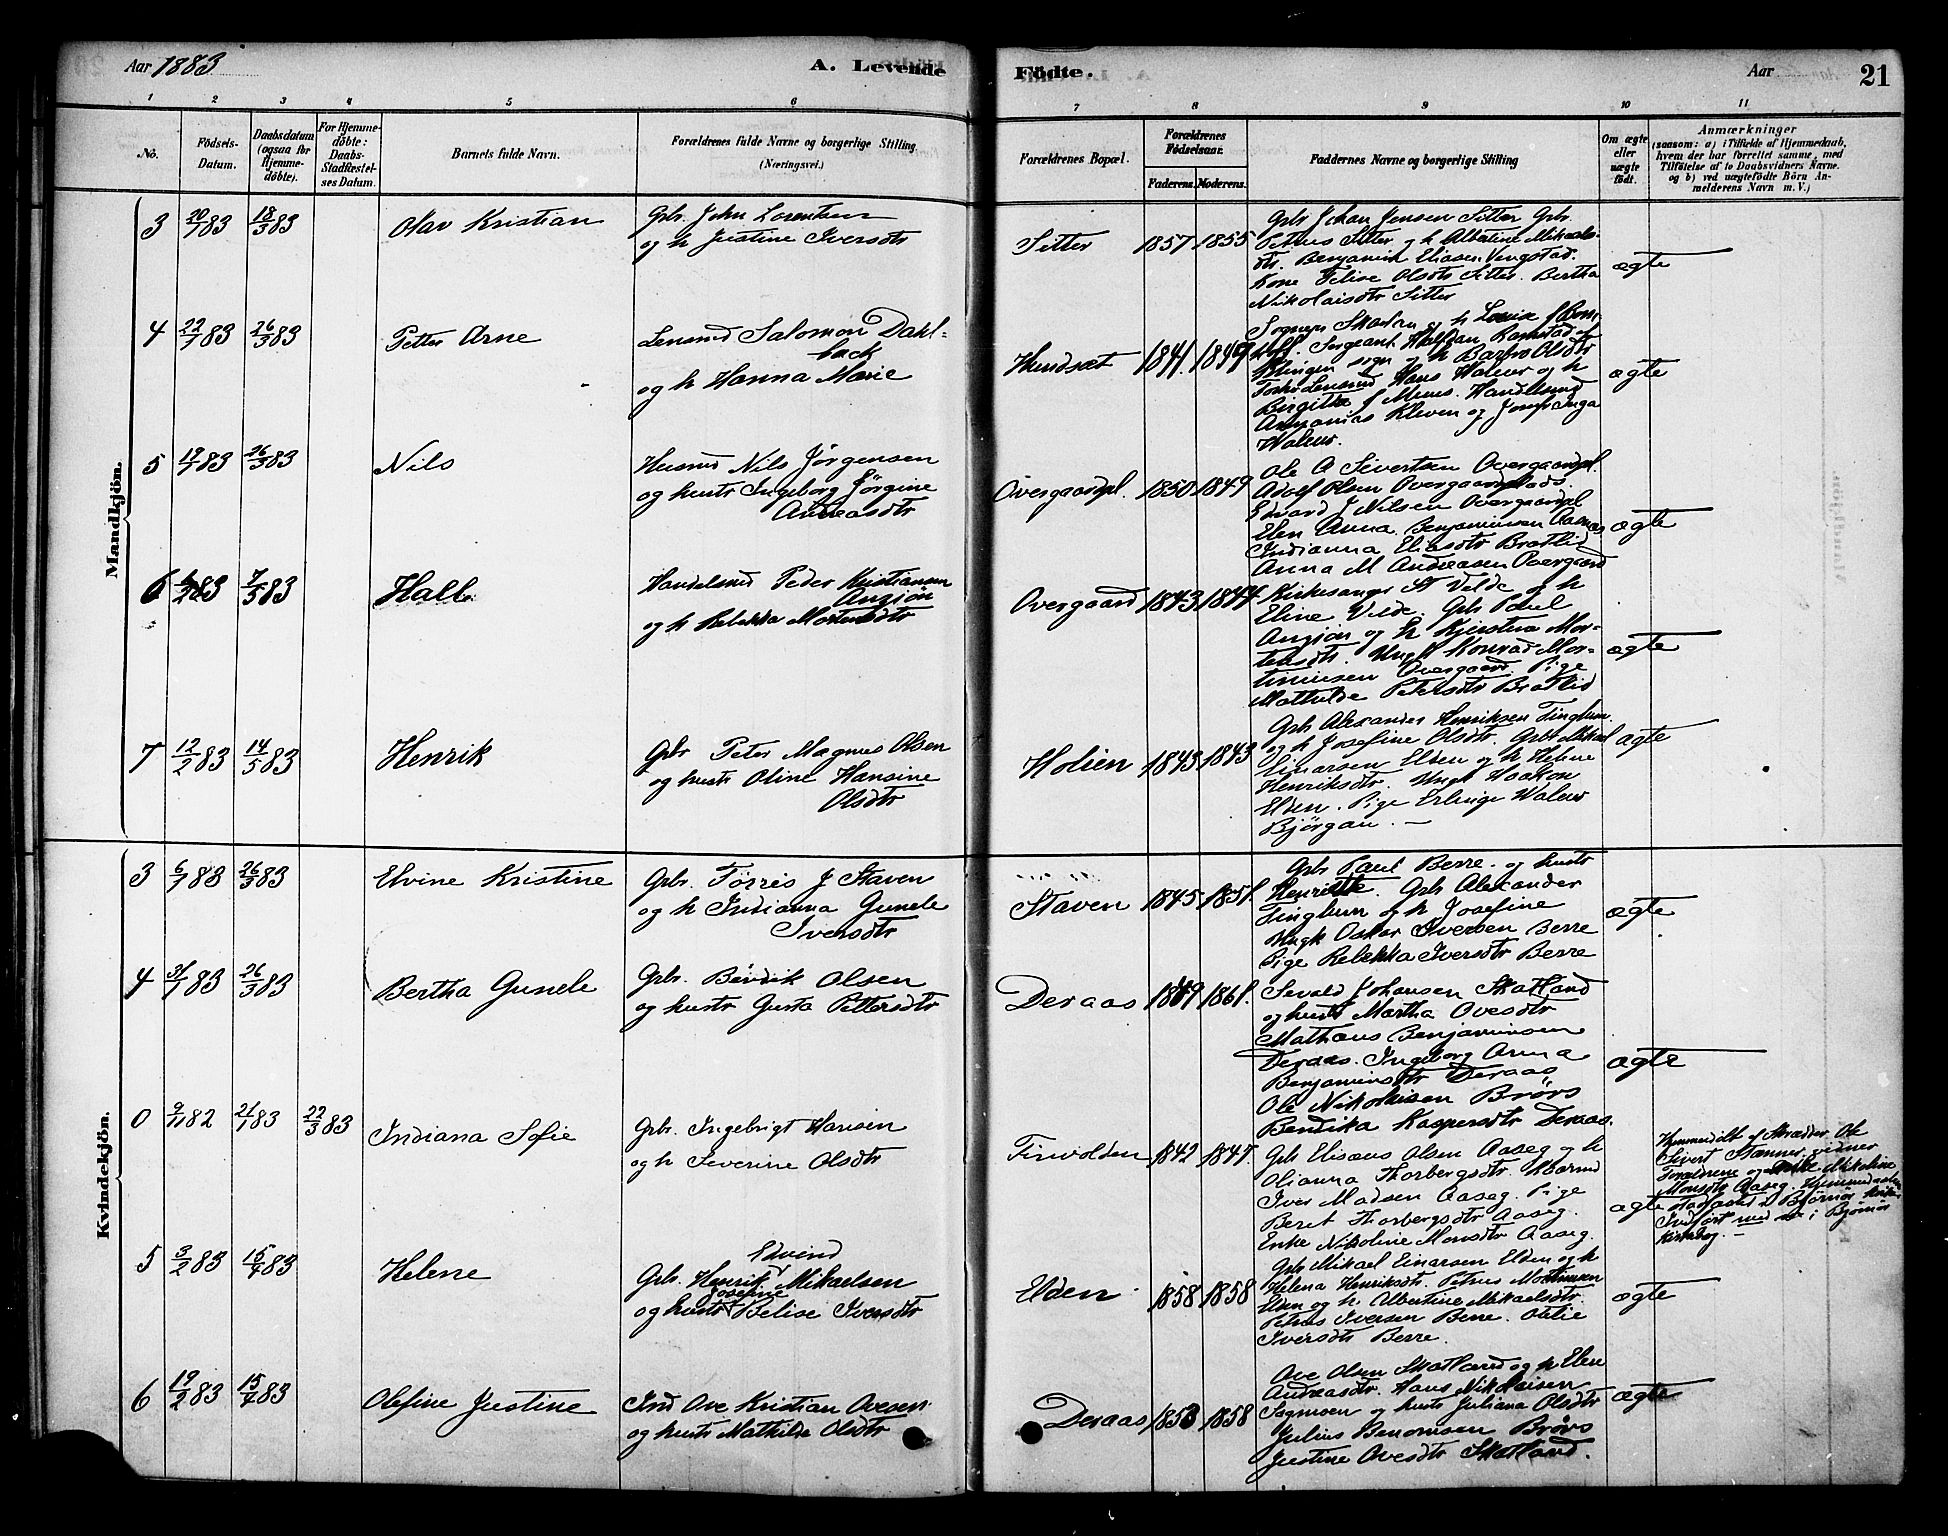 Aar 1883. A. Levende Födte. Aar 21
1 2 3 4 5 6 7 8 9 10 11
No. Födsels-Datum. Daabsdatum (ogsaa for Hjemmedöbte). For Hjemmedöbte: Daabs-Stadfæstelses Datum. Barnets fulde Navn. Forældrenes fulde Navne og borgerlige Stilling (Næringsvei). Forældrenes Bopæl. Forældrenes Födselsaar. Faderens. Moderens. Faddernes Navne og borgerlige Stilling Om ægte eller uægte födt. Anmærkninger (saasom: a) i Tilfælde af Hjemmedaab, hvem der har forrettet samme, med Tilföielse af to Daabsvidners Navne, og b) ved uægtefödte Börn Anmelderens Navn m. V.)
Mandkjön.
3 20/1 83 18/3 83 Olav Kristian Grb. John Lorentsen
og h Justine Iversdtr
Sitter 1857 1855 Grb Johan Jensen Sitter Grb
Petrus Sitter og h Albertine Mikaels-
dtr. Benjamin Eliasen Vengstad.
Kone Felise Olsdtr Sitter. Bertha
Nikolaisdtr Sitter
ægte
4 22/1 83 26/3 83 Petter Arne Lensmd Salomon Dahl-
back
og h Hanna Marie
Hundsæt 1841. 1849
Sergeant Haldan Ramstad af
sogn og h Barbro Olsdtr
Lensmd Hans Walew og h
Birgitte f Menes. Handelsmd
Ananias Kleven og Inga
Walew.
ægte
5 19/1 83 26/3 83 Nils Husmd Nils Jørgensen
og hustr Ingeborg Jørgine
Andreasdtr
Overgaardpl. 1850 1849 Ole A Sivertsen Overgaardpl.
Adolf Olsen Overgaardplads.
Edvard J Nilsen Overgaardpl
Elen Anna Benjaminsen Aasnæs
Indianna Eliasdtr Bratlid
Anna M Andreasen Overgaard
ægte
6 6/2 83 7/5 83 Hall Handelsmd Peder Kristiansen
Anzjøn
og h Rebekka Mortensdtr
Overgaard 1843 1844 Kirkesanger St Velde og h
Eline Velde. Grb Paul
Anzjøn og h Kjerstina Mor-
tensdtr. Ungk Konrad Mor-
timisen Overgaard. Pige
Mathilde Petersdtr Bratlid
ægte
7 12/2 83 14/5 83 Henrik Grb Peter Magnus Olsen
og hustr Oline Hansine
Olsdtr
Holien 1843 1843 Grb Alexander Henriksen Tinghun.
og h Josefine Olsdtr. Grb Mikael
Einarsen Elden og h Helene
Henriksdtr. Ungk Haakon
Elden. Pige Erlinge Walew
Bjørgan. —
ægte
Kvindekjön.
3 6/1 83 26/3 83 Elvine Kristine Grb. Tørris J Staven
og h Indianna Gunele
Iversdtr
Staven 1845 1851. Grb Paul Berre. og hustr
Henriette. Grb Alexander
Tinghun og h Josefine
Ungk Oskar Iversen Berre
Pige Rebekka Iversdtr Berre
ægte
4 31/1 83 26/3 83 Bertha Gunele Grb. Bendik Olsen
og hustr Gusta Pettersdtr
Deraas 1849 1861. Sevald Johansen Skatland
og hustr Martha Ovesdtr
Mathæus Benjaminsen
Deraas. Ingeborg Anna
Benjaminsdtr Deraas
Ole Nikolaisen Brørs
Bendika Kaspersdtr Deraas.
ægte
0 9/11 82 21/1 83 22/3 83 Indiana Sofie Grb. Ingebrigt Hansen
og h Severine Olsdtr
Finvolden 1842 1847. Grb Elisæus Olsen Aaseg og h
Olianna Thorbergsdtr
Iver Madsen Aaseg. Pige
Beret Thorbergsdtr Aaseg.
Enke Nikoline Monsdtr Aaseg.
ægte Hjemmedøbt af Skrædder Ole
Sivert Stamnes, vidner
Forældrene og Enke Nikoline
Monsdtr Aaseg. Hjemmedaaben
stadfæstet i Bjørnør kirke.
Indført med i Bjørnør
Kirkebog. —
5 3/2 83 15/4 83 Helene Edvind
Grb. Henrik Mikaelsen
Josefine
og hustr Belise Iversdtr
Elden 1858 1858 Grb Mikael Einarsen Elden og h
Helena Henriksdtr. Petrus Mortensen
Elden og h. Albertine Mikaelsdtr.
Petrus Iversen Berre. Otelie
Iversdtr Berre.
ægte
6 19/2 83 15/4 83 Olefine Justine Ind Ove Kristian Ovesen
og hustr Mathilde Olsdtr
Deraas 1853 1858 Ove Olsen Skatland og h Elen
Andreasdtr. Hans Nikolaisen
Sagmoen og hustr Juliana Olsdtr
Julius Benonisen Brørs
Justine Ovesdtr Skatland.
ægte